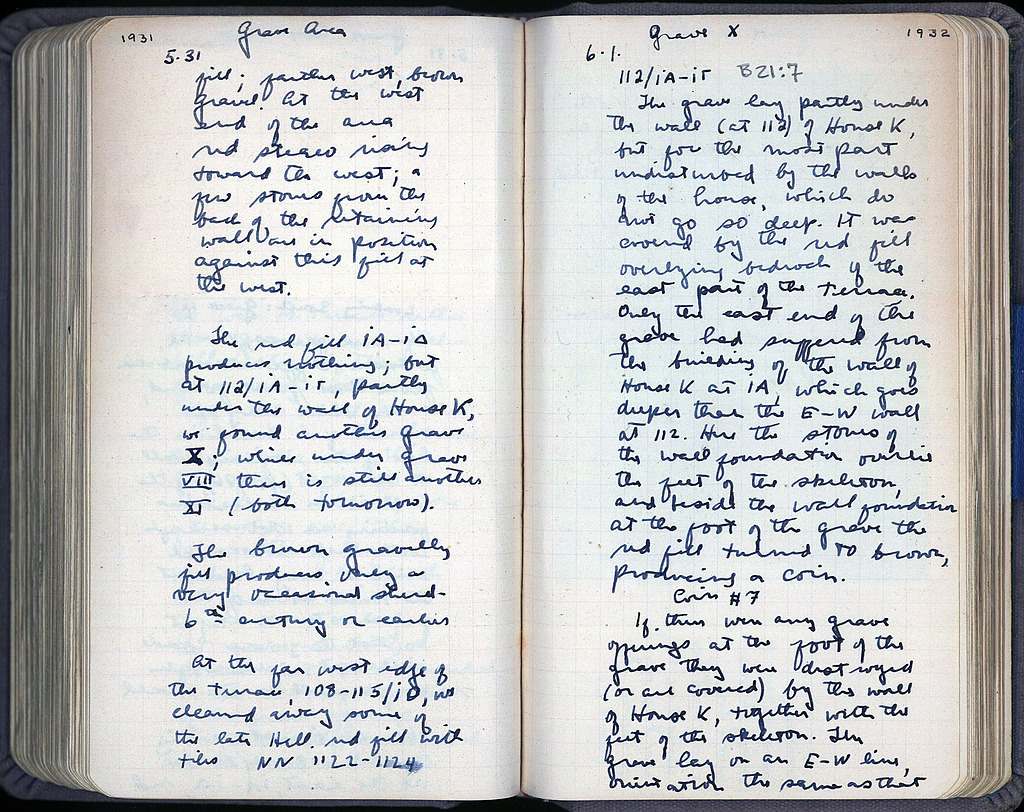 1931
Grave Area
5.31
fill; further west, brown
gravel. At the west
end of the area
red stereo rising
toward the west; a
few stones from the
back of the retaining
wall are in position
against this fill at
the west.
The red fill ΙΑ-ΙΔ
produces nothing; but
at 112/ΙΑ-ΙΓ, partly
under the wall of House K,
we found another grave
X; while under grave
VIII there is still another
XI (both tomorrow).
The brown gravelly
fill produces only a
very occasional sherd-
6th century or earlier
At the far west edge of
the terrace, 108-115/ΙΘ, we
cleaned away some of
the late Hell. red fill with
tiles NN 1122-1124
1932
Grave X
6.1.
112/ΙΑ-ΙΓ B21:7
The grave lay partly under
the wall (at 112) of House K,
but for the most part
undisturbed by the walls
of the house, which do
not go so deep. It was
covered by the red fill
overlying bedrock of the
east part of the terrace.
Only the east end of the
grave had suffered from
the building of the wall of
House K at ΙΑ, which goes
deeper than the E-W wall
at 112. Here the stones of
the wall foundation overlie
the feet of the skeleton,
and beside the wall foundation
at the foot of the grave the
red fill turned to brown,
producing a coin.
Coin #7
If there were any grave
offerings at the foot of the
grave they were destroyed
(or are covered) by the wall
of House K, together with the
feet of the skeleton. The
grave lay on an E-W line,
orientation the same as that